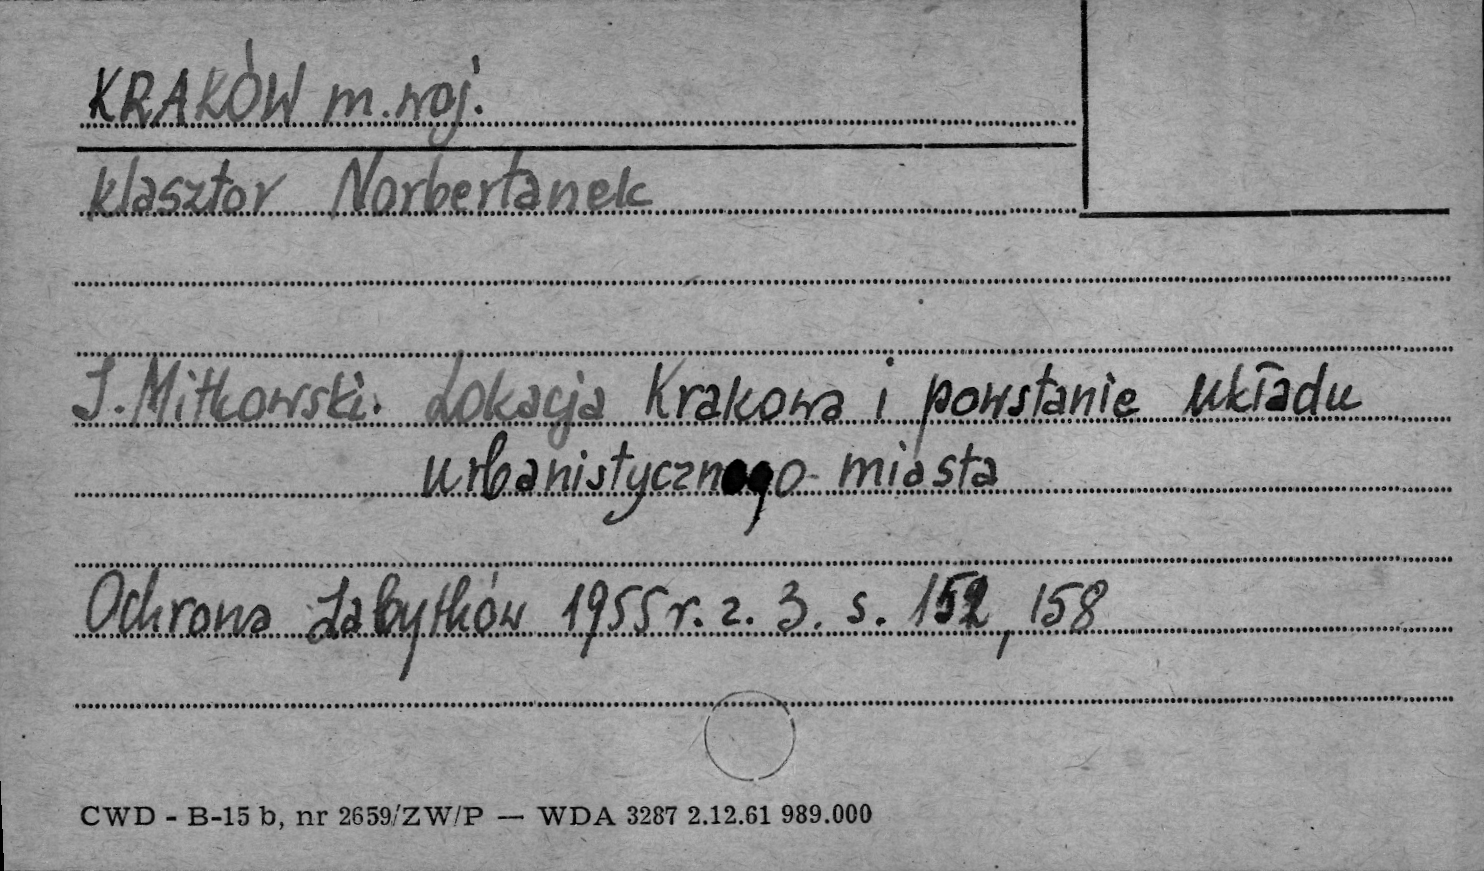 KRAKÓW m.woj.
klasztor Norbertanek
J. Mitkowski. Lokacja Krakowa i powstanie układu
urbanistycznego miasta
Ochrona Zabytków 1955 r. z. 3. s. 152, 158
CWD - B-15 b, nr 2659/ZW/P — WDA 3287 2.12.61 989.000